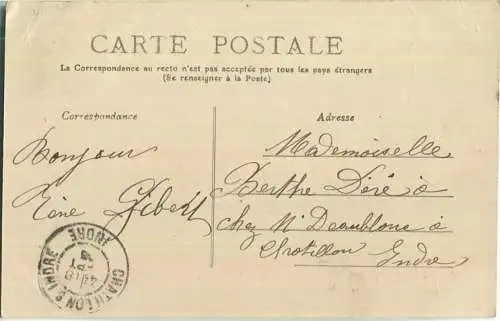 CARTE POSTALE
La Correspondance au recto n'est pas acceptée par tous les pays étrangers
(Se renseigner à la Poste)
Correspondance
Adresse
Bonjour
Mademoiselle
Berthe à
chez Mr à
Chatillon
Indre
CHATILLON S INDRE
INDRE